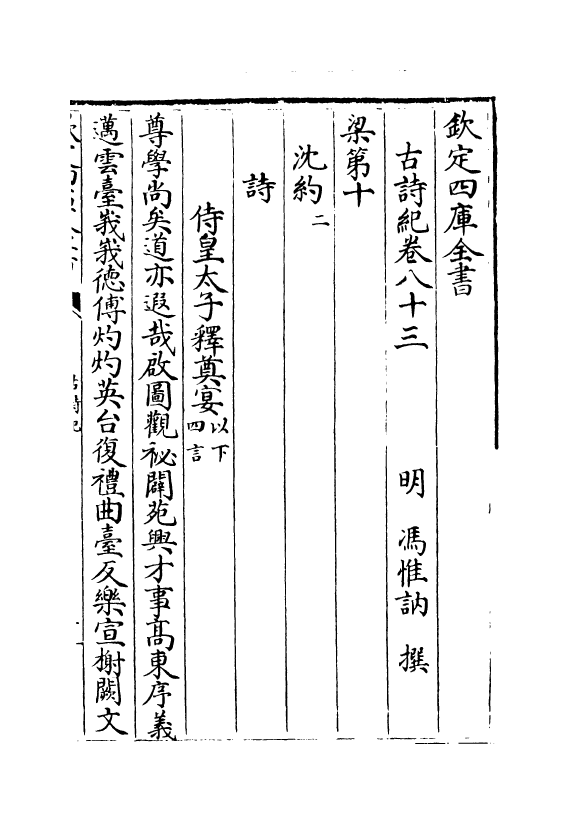 欽定四庫全書
古詩紀卷八十三 明 馮惟訥 撰
梁第十
沈約二
詩
侍皇太子釋奠宴以下四言
尊學尚矣道亦遐哉啟圖觀祕闢苑興才事髙東序義
邁雲臺峩峩徳傅灼灼英台復禮曲臺反樂宣榭闕文